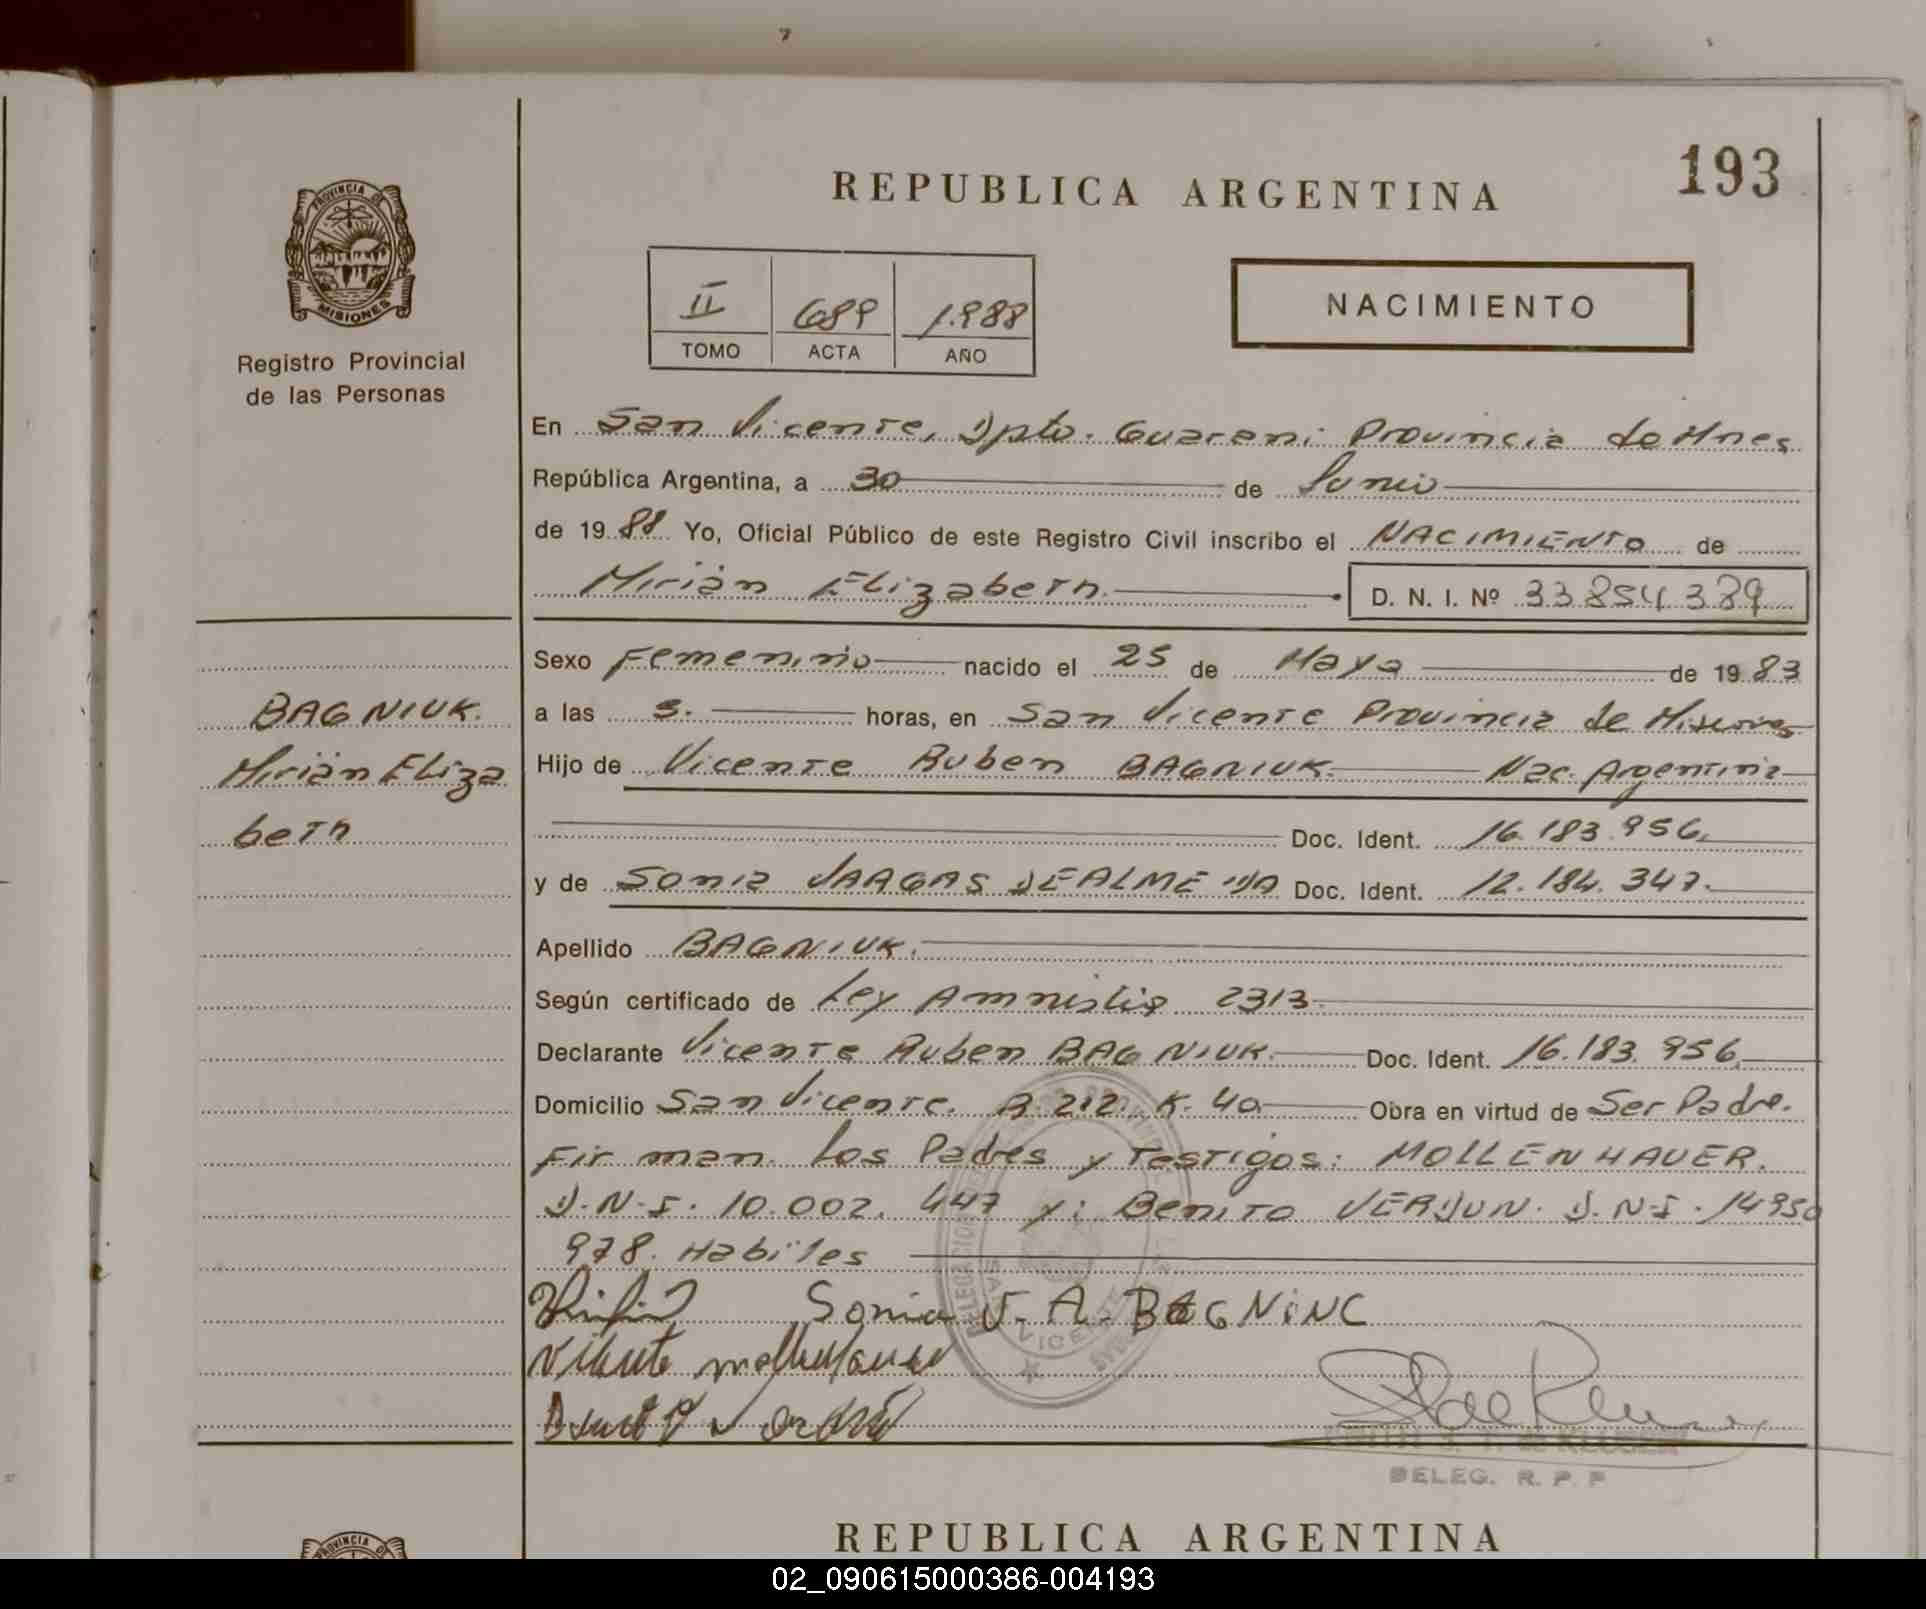 193
REPUBLICA ARGENTINA
PROVINCIA DE
MISIONES
Registro Provincial
de las Personas
II 689 1.988
TOMO ACTA AÑO
NACIMIENTO
En San Vicente, Dpto. Guarani Provincia de Mnes
República Argentina, a 30 de Junio
de 1988 Yo, Oficial Público de este Registro Civil inscribo el NACIMIENTO de
Mirian Elizabeth. D. N. I. Nº 33854389
Sexo Femenino nacido el 25 de Mayo de 1983
a las 3. horas, en San Vicente Provincia de Misiones
Hijo de Vicente Ruben BAGNIUK. Nac. Argentina
Doc. Ident. 16.183.956.
y de Sonia VARGAS DE ALMEIDA Doc. Ident. 12.184.347.
Apellido BAGNIUK.
Según certificado de Ley Amnistia 2313.
Declarante Vicente Ruben BAGNIUK. Doc. Ident. 16.183.956.
Domicilio San Vicente. R. 212. K. 40 Obra en virtud de Ser Padre.
Firman. Los Padres y Testigos: MOLLENHAUER.
D.N.I. 10.002.447 y: Benito VERDUN. D.N.I. 14950
978. Habiles
BAGNIUK.
Mirian Eliza
beth
Sonia V. A. BAGNiNC
VICENTE
DELEG. R. P. P
REPUBLICA ARGENTINA
PROVINCIA DE
02_090615000386-004193